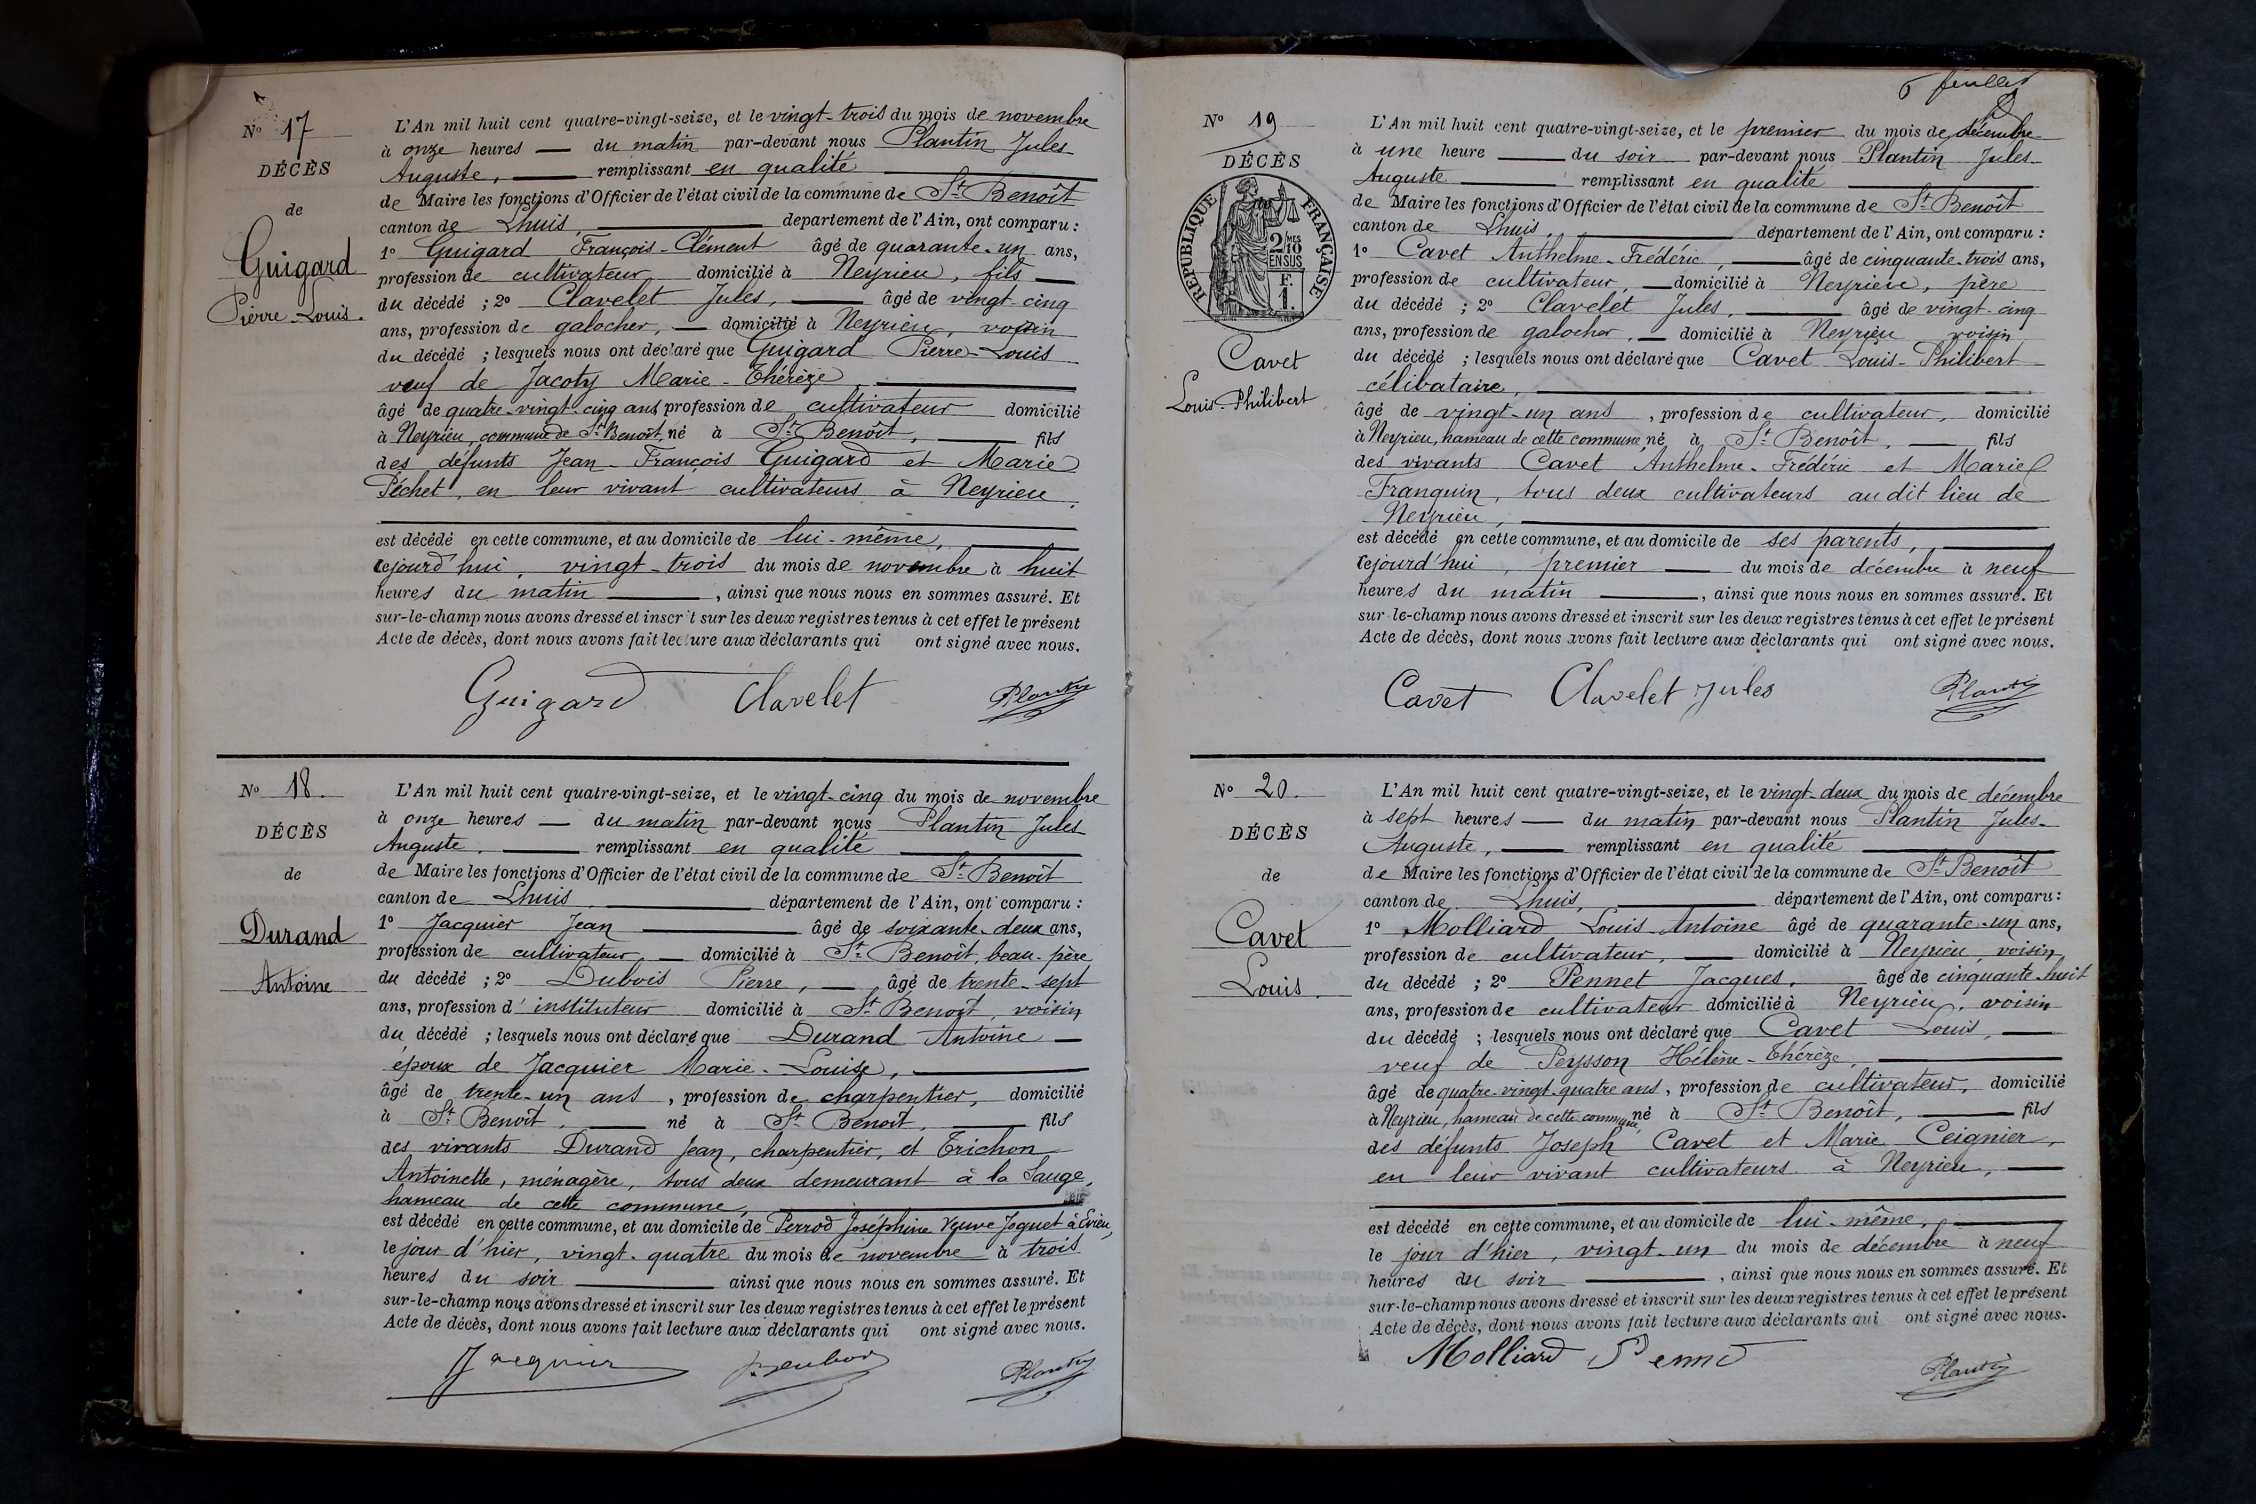 N° 17
DÉCÈS
de
Guigard
Pierre-Louis.
L'An mil huit cent quatre-vingt-seize, et le vingt-trois du mois de novembre
à onze heures — du matin par-devant nous Plantin Jules
Auguste, — remplissant en qualité
de Maire les fonctions d'Officier de l'état civil de la commune de St Benoît
canton de Lhuis, département de l'Ain, ont comparu :
1° Guigard François-Clément âgé de quarante-un ans,
profession de cultivateur domicilié à Neyrieu, fils —
du décédé ; 2° Clavelet Jules, — âgé de vingt-cinq
ans, profession de galocher, — domicilié à Neyrieu, voisin
du décédé ; lesquels nous ont déclaré que Guigard Pierre-Louis
veuf de Jacoty Marie-Thérèze,
âgé de quatre-vingt-cinq ans profession de cultivateur domicilié
à Neyrieu, commune de St Benoît, né à St Benoît, — fils
des défunts Jean-François Guigard et Marie
Péchet, en leur vivant cultivateurs à Neyrieu,
est décédé en cette commune, et au domicile de lui-même,
cejourd'hui, vingt-trois du mois de novembre à huit
heures du matin —, ainsi que nous nous en sommes assuré. Et
sur-le-champ nous avons dressé et inscrit sur les deux registres tenus à cet effet le présent
Acte de décès, dont nous avons fait lecture aux déclarants qui ont signé avec nous.
Guigard Clavelet Plantin
N° 18.
DÉCÈS
de
Durand
Antoine
L'An mil huit cent quatre-vingt-seize, et le vingt-cinq du mois de novembre
à onze heures — du matin par-devant nous Plantin Jules
Auguste. — remplissant en qualité
de Maire les fonctions d'Officier de l'état civil de la commune de St Benoît
canton de Lhuis, département de l'Ain, ont comparu :
1° Jacquier Jean — âgé de soixante-deux ans,
profession de cultivateur, — domicilié à St Benoît, beau-père
du décédé ; 2° Dubois Pierre, — âgé de trente-sept
ans, profession d'instituteur domicilié à St Benoît, voisin
du décédé ; lesquels nous ont déclaré que Durand Antoine —
époux de Jacquier Marie-Louise,
âgé de trente-un ans, profession de charpentier, domicilié
à St Benoît, — né à St Benoît, — fils
des vivants Durand Jean, charpentier, et Trichon
Antoinette, ménagère, tous deux demeurant à la Sauge,
hameau de cette commune,
est décédé en cette commune, et au domicile de Perrod Joséphine Veuve Joguet à Evieu,
le jour d'hier, vingt-quatre du mois de novembre à trois
heures du soir — ainsi que nous nous en sommes assuré. Et
sur-le-champ nous avons dressé et inscrit sur les deux registres tenus à cet effet le présent
Acte de décès, dont nous avons fait lecture aux déclarants qui ont signé avec nous.
Jacquier Plantin
6 feuillet
N° 19
DÉCÈS
RÉPUBLIQUE FRANÇAISE
2 MES
10
EN SUS
F.
1.
Cavet
Louis-Philibert
L'An mil huit cent quatre-vingt-seize, et le premier du mois de décembre
à une heure — du soir par-devant nous Plantin Jules
Auguste — remplissant en qualité
de Maire les fonctions d'Officier de l'état civil de la commune de St Benoît
canton de Lhuis, département de l'Ain, ont comparu :
1° Cavet Anthelme-Frédéric, — âgé de cinquante-trois ans,
profession de cultivateur, — domicilié à Neyrieu, père
du décédé ; 2° Clavelet Jules, — âgé de vingt-cinq
ans, profession de galocher, — domicilié à Neyrieu voisin
du décédé ; lesquels nous ont déclaré que Cavet Louis-Philibert
célibataire,
âgé de vingt-un ans, profession de cultivateur, domicilié
à Neyrieu, hameau de cette commune, né à St Benoît, — fils
des vivants Cavet Anthelme-Frédéric et Marie
Franquin, tous deux cultivateurs au dit lieu de
Neyrieu,
est décédé en cette commune, et au domicile de ses parents,
cejourd'hui, premier — du mois de décembre à neuf
heures du matin —, ainsi que nous nous en sommes assuré. Et
sur-le-champ nous avons dressé et inscrit sur les deux registres tenus à cet effet le présent
Acte de décès, dont nous avons fait lecture aux déclarants qui ont signé avec nous.
Cavet Clavelet Jules Plantin
N° 20.
DÉCÈS
de
Cavet
Louis.
L'An mil huit cent quatre-vingt-seize, et le vingt-deux du mois de décembre
à sept heures — du matin par-devant nous Plantin Jules
Auguste, — remplissant en qualité
de Maire les fonctions d'Officier de l'état civil de la commune de St Benoît
canton de Lhuis, département de l'Ain, ont comparu :
1° Molliard Louis Antoine âgé de quarante-un ans,
profession de cultivateur, — domicilié à Neyrieu, voisin
du décédé ; 2° Pennet Jacques, âgé de cinquante-huit
ans, profession de cultivateur domicilié à Neyrieu, voisin
du décédé ; lesquels nous ont déclaré que Cavet Louis, —
veuf de Peysson Hélène-Thérèze,
âgé de quatre-vingt-quatre ans, profession de cultivateur, domicilié
à Neyrieu, hameau de cette commune, né à St Benoît, — fils
des défunts Joseph Cavet et Marie Ceignier,
en leur vivant cultivateurs à Neyrieu, —
est décédé en cette commune, et au domicile de lui-même,
le jour d'hier, vingt-un du mois de décembre à neuf
heures du soir —, ainsi que nous nous en sommes assuré. Et
sur-le-champ nous avons dressé et inscrit sur les deux registres tenus à cet effet le présent
Acte de décès, dont nous avons fait lecture aux déclarants qui ont signé avec nous.
Molliard Pennet Plantin